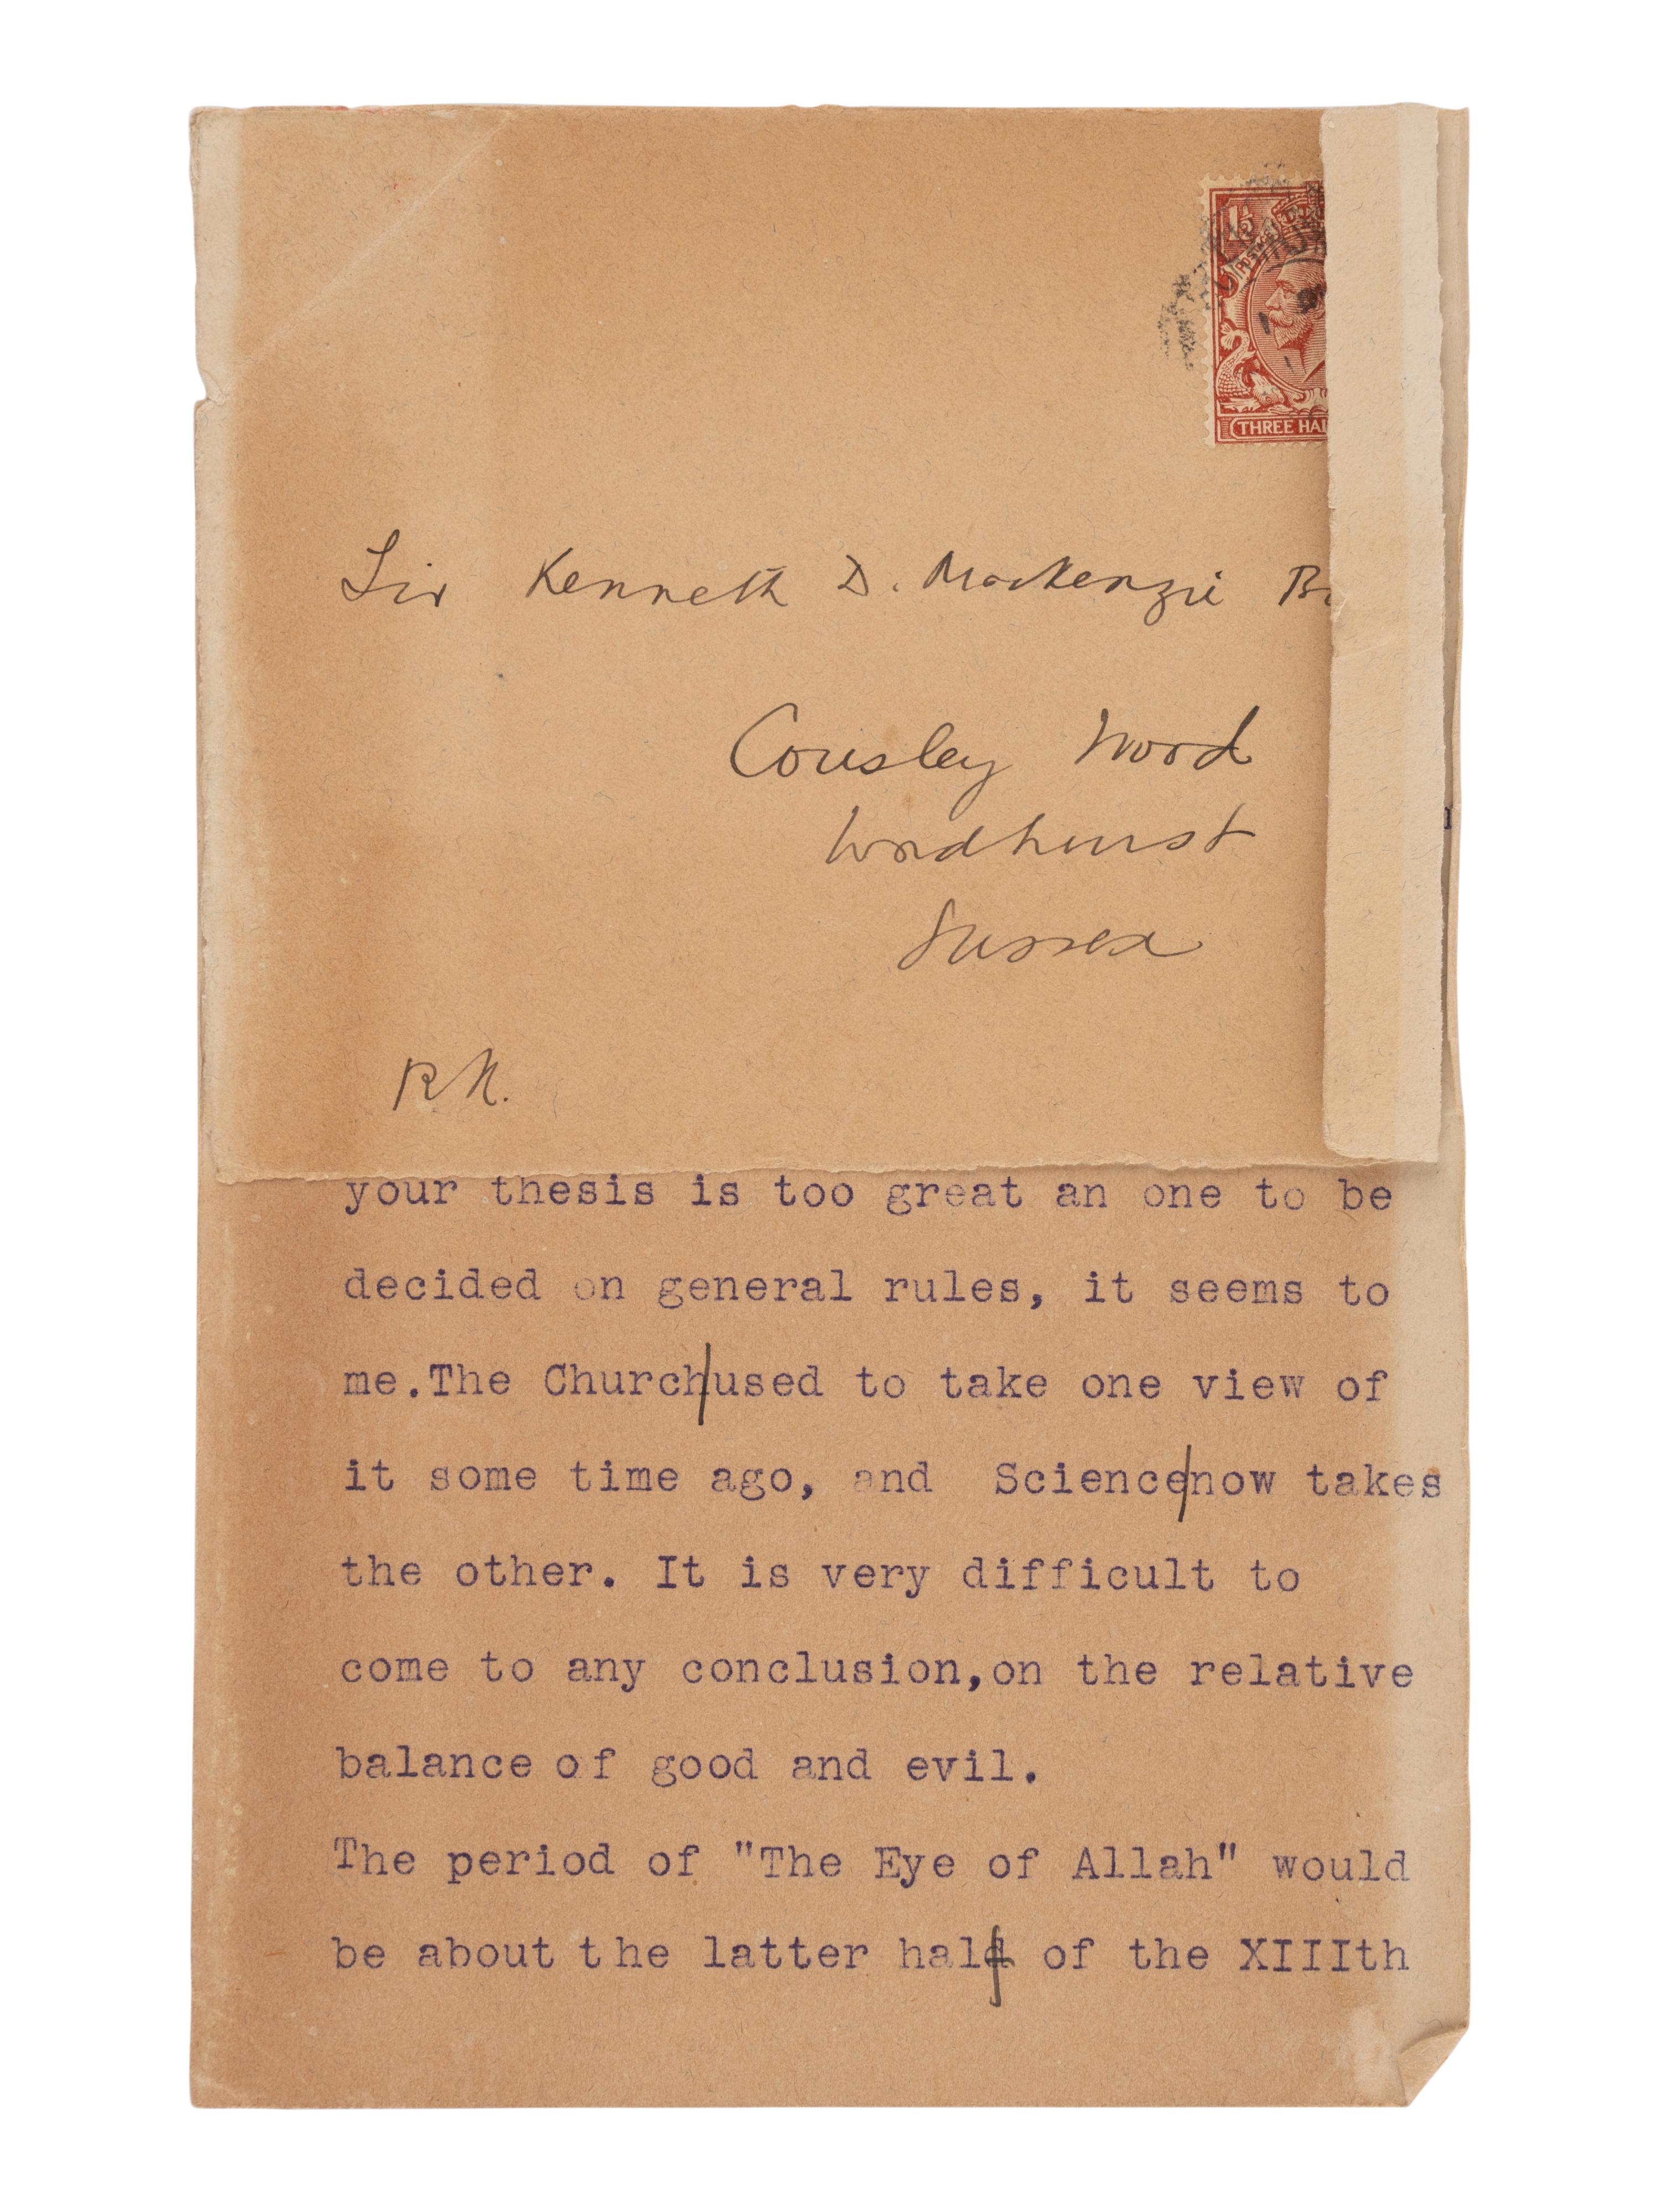 1½
POSTAGE
THREE HAL
Sir Kenneth D. Mackenzie B
Cousley Wood
Wadhurst
Sussex
RK.
your thesis is too great an one to be
decided on general rules, it seems to
me.The Church/used to take one view of
it some time ago, and Science/now takes
the other. It is very difficult to
come to any conclusion,on the relative
balance of good and evil.
The period of "The Eye of Allah" would
be about the latter half of the XIIIth